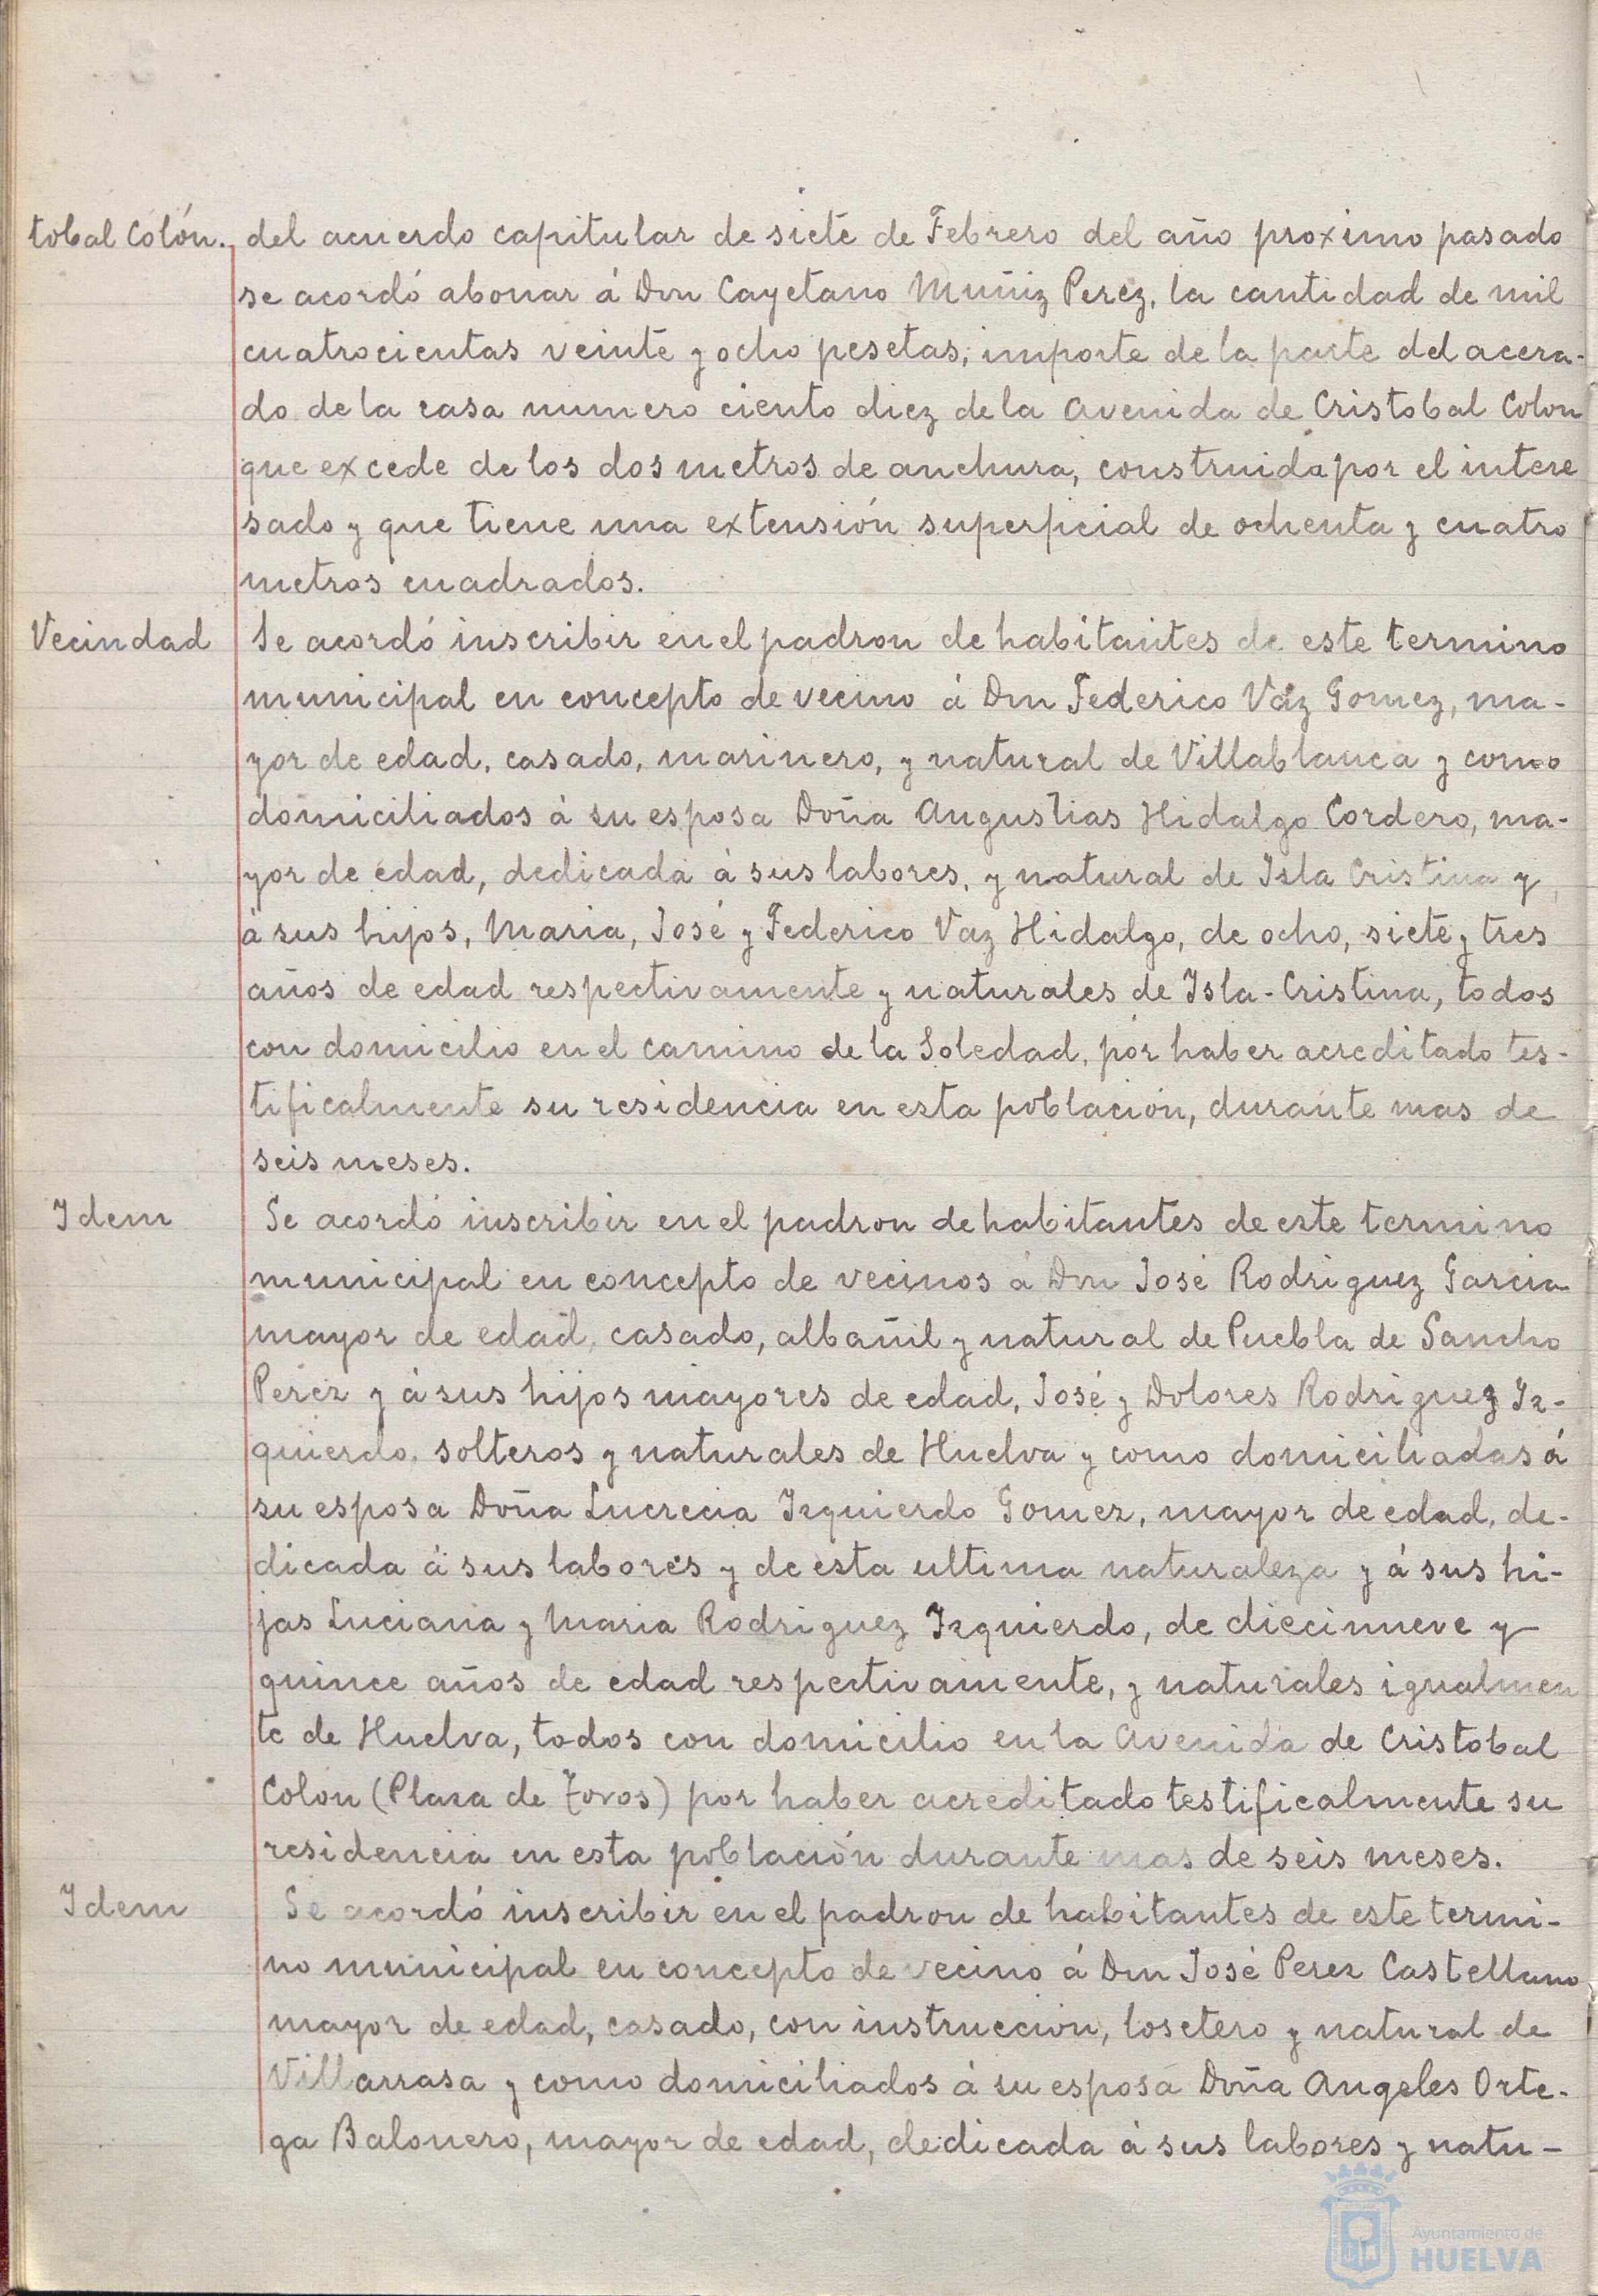 tobal Colón. del acuerdo capitular de siete de Febrero del año proximo pasado
se acordó abonar á Don Cayetano Muñiz Perez, la cantidad de mil
cuatrocientas veinte y ocho pesetas, importe de la parte del acera-
do de la casa numero ciento diez de la Avenida de Cristobal Colon
que excede de los dos metros de anchura, construida por el intere
sado y que tiene una extensión superficial de ochenta y cuatro
metros cuadrados.
Vecindad Se acordó inscribir en el padron de habitantes de este termino
municipal en concepto de vecino á Don Federico Váz Gomez, ma-
yor de edad, casado, marinero, y natural de Villablanca y como
domiciliados á su esposa Doña Augustias Hidalgo Cordero, ma-
yor de edad, dedicada á sus labores, y natural de Isla Cristina y
á sus hijos, Maria, José y Federico Vaz Hidalgo, de ocho, siete y tres
años de edad respectivamente y naturales de Isla-Cristina, todos
con domicilio en el camino de la Soledad, por haber acreditado tes-
tificalmente su residencia en esta población, durante mas de
seis meses.
Idem Se acordó inscribir en el padron de habitantes de este termino
municipal en concepto de vecinos á Don José Rodriguez Garcia
mayor de edad, casado, albañil y natural de Puebla de Sancho
Perez y á sus hijos mayores de edad, José y Dolores Rodriguez Iz-
quierdo, solteros y naturales de Huelva y como domiciliadas á
su esposa Doña Lucrecia Izquierdo Gomez, mayor de edad, de-
dicada á sus labores y de esta ultima naturaleza y á sus hi-
jas Luciana y Maria Rodriguez Izquierdo, de diecinueve y
quince años de edad respectivamente, y naturales igualmen
te de Huelva, todos con domicilio en la Avenida de Cristobal
Colon (Plaza de Toros) por haber acreditado testificalmente su
residencia en esta población durante mas de seis meses.
Idem Se acordó inscribir en el padron de habitantes de este termi-
no municipal en concepto de vecino á Don José Perez Castellano
mayor de edad, casado, con instruccion, losetero y natural de
Villarrasa y como domiciliados á su esposa Doña Angeles Orte-
ga Balonero, mayor de edad, dedicada á sus labores y natu-
Ayuntamiento de
HUELVA